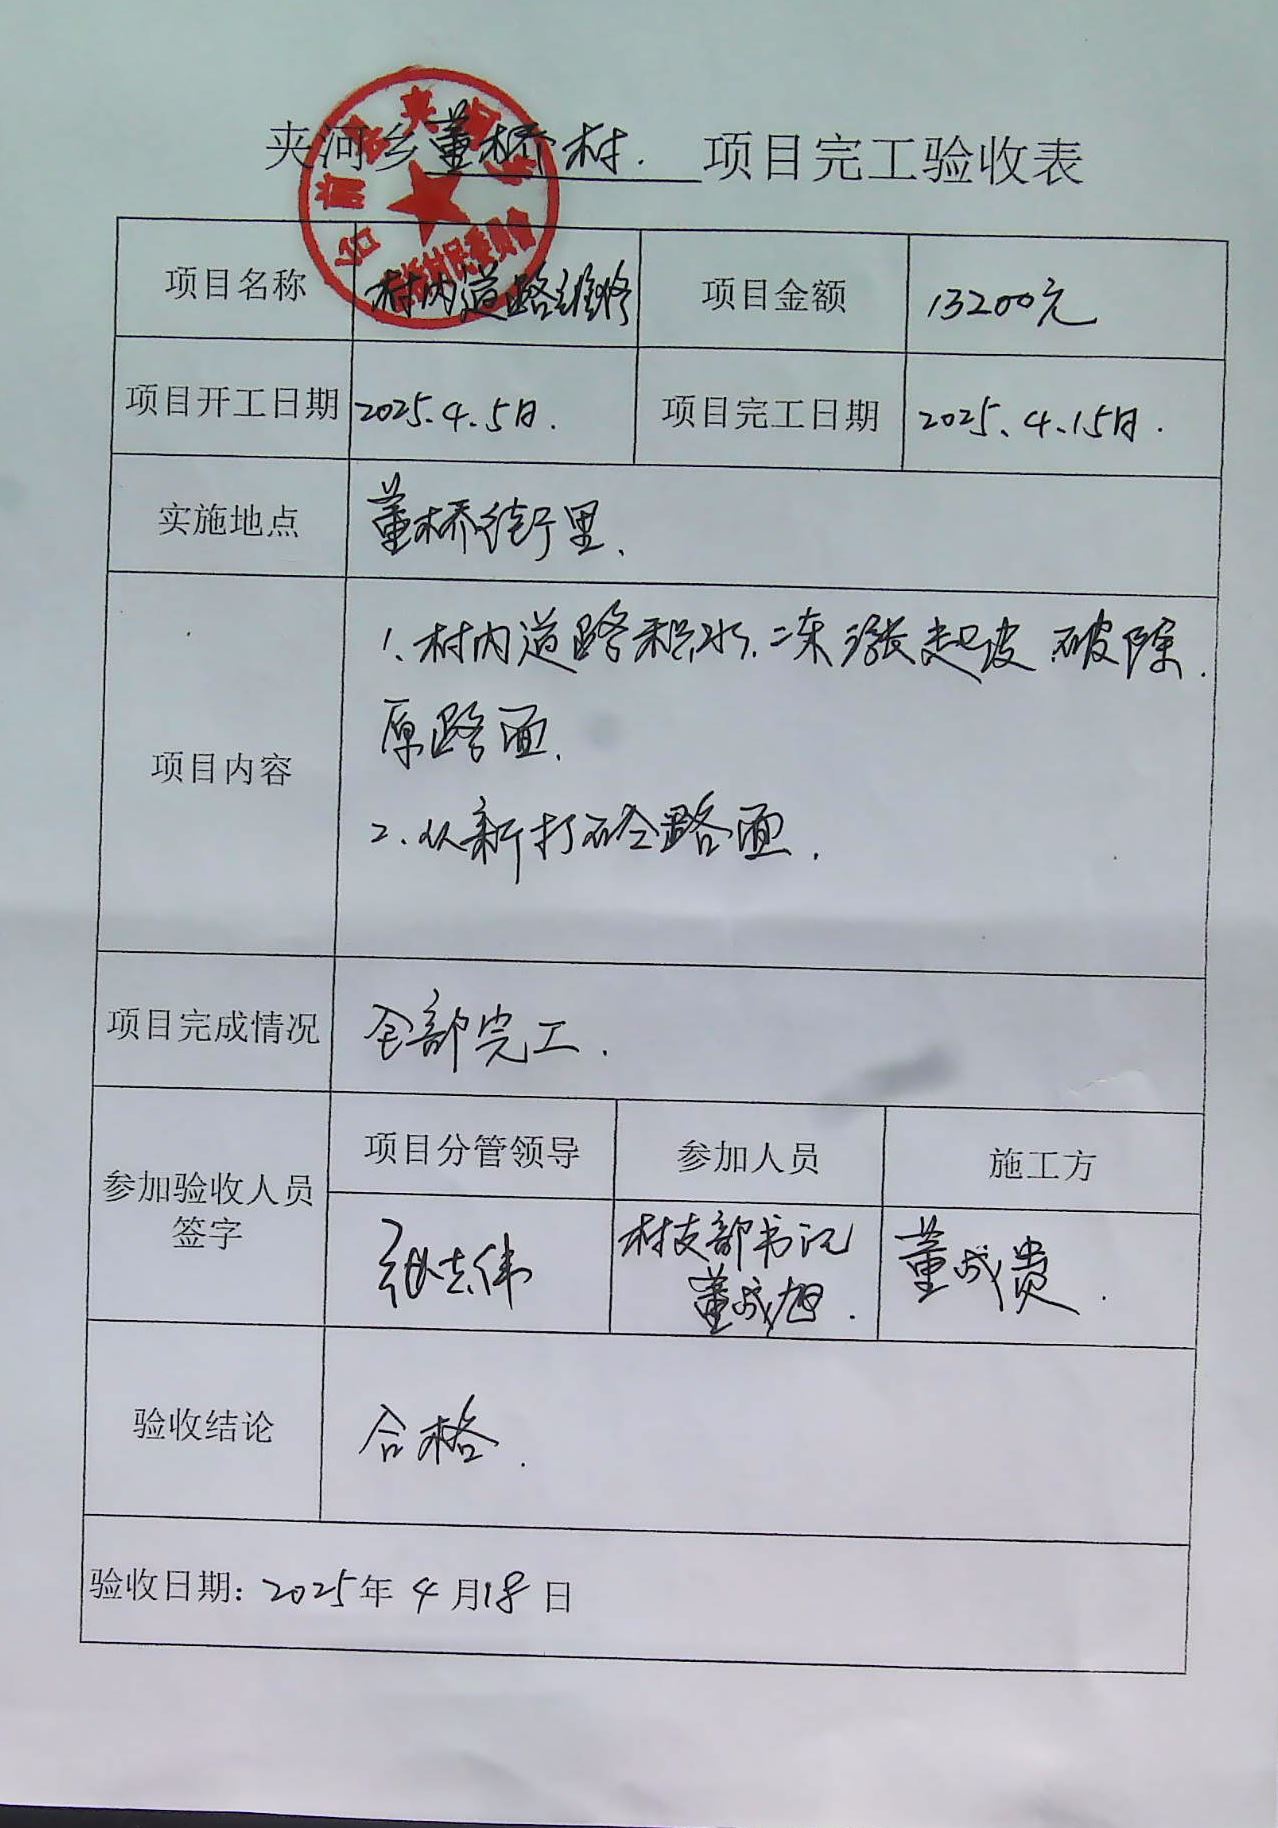 夹河乡董桥村. 项目完工验收表
项目名称 村内道路维修 项目金额 13200元
项目开工日期 2025.4.5日. 项目完工日期 2025、4.15日.
实施地点 董桥街里.
项目内容
1、村内道路积水.冻涨起皮 破除.
原路面.
2、从新打砼路面.
项目完成情况 全部完工.
参加验收人员
签字
项目分管领导 参加人员 施工方
张志伟 村支部书记 董成贵.
董成旭.
验收结论 合格.
验收日期: 2025年 4月18日